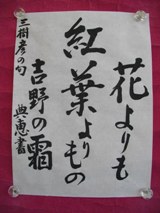 花よりも
紅葉よりもの
吉野の霜
三樹彦の句
典恵書